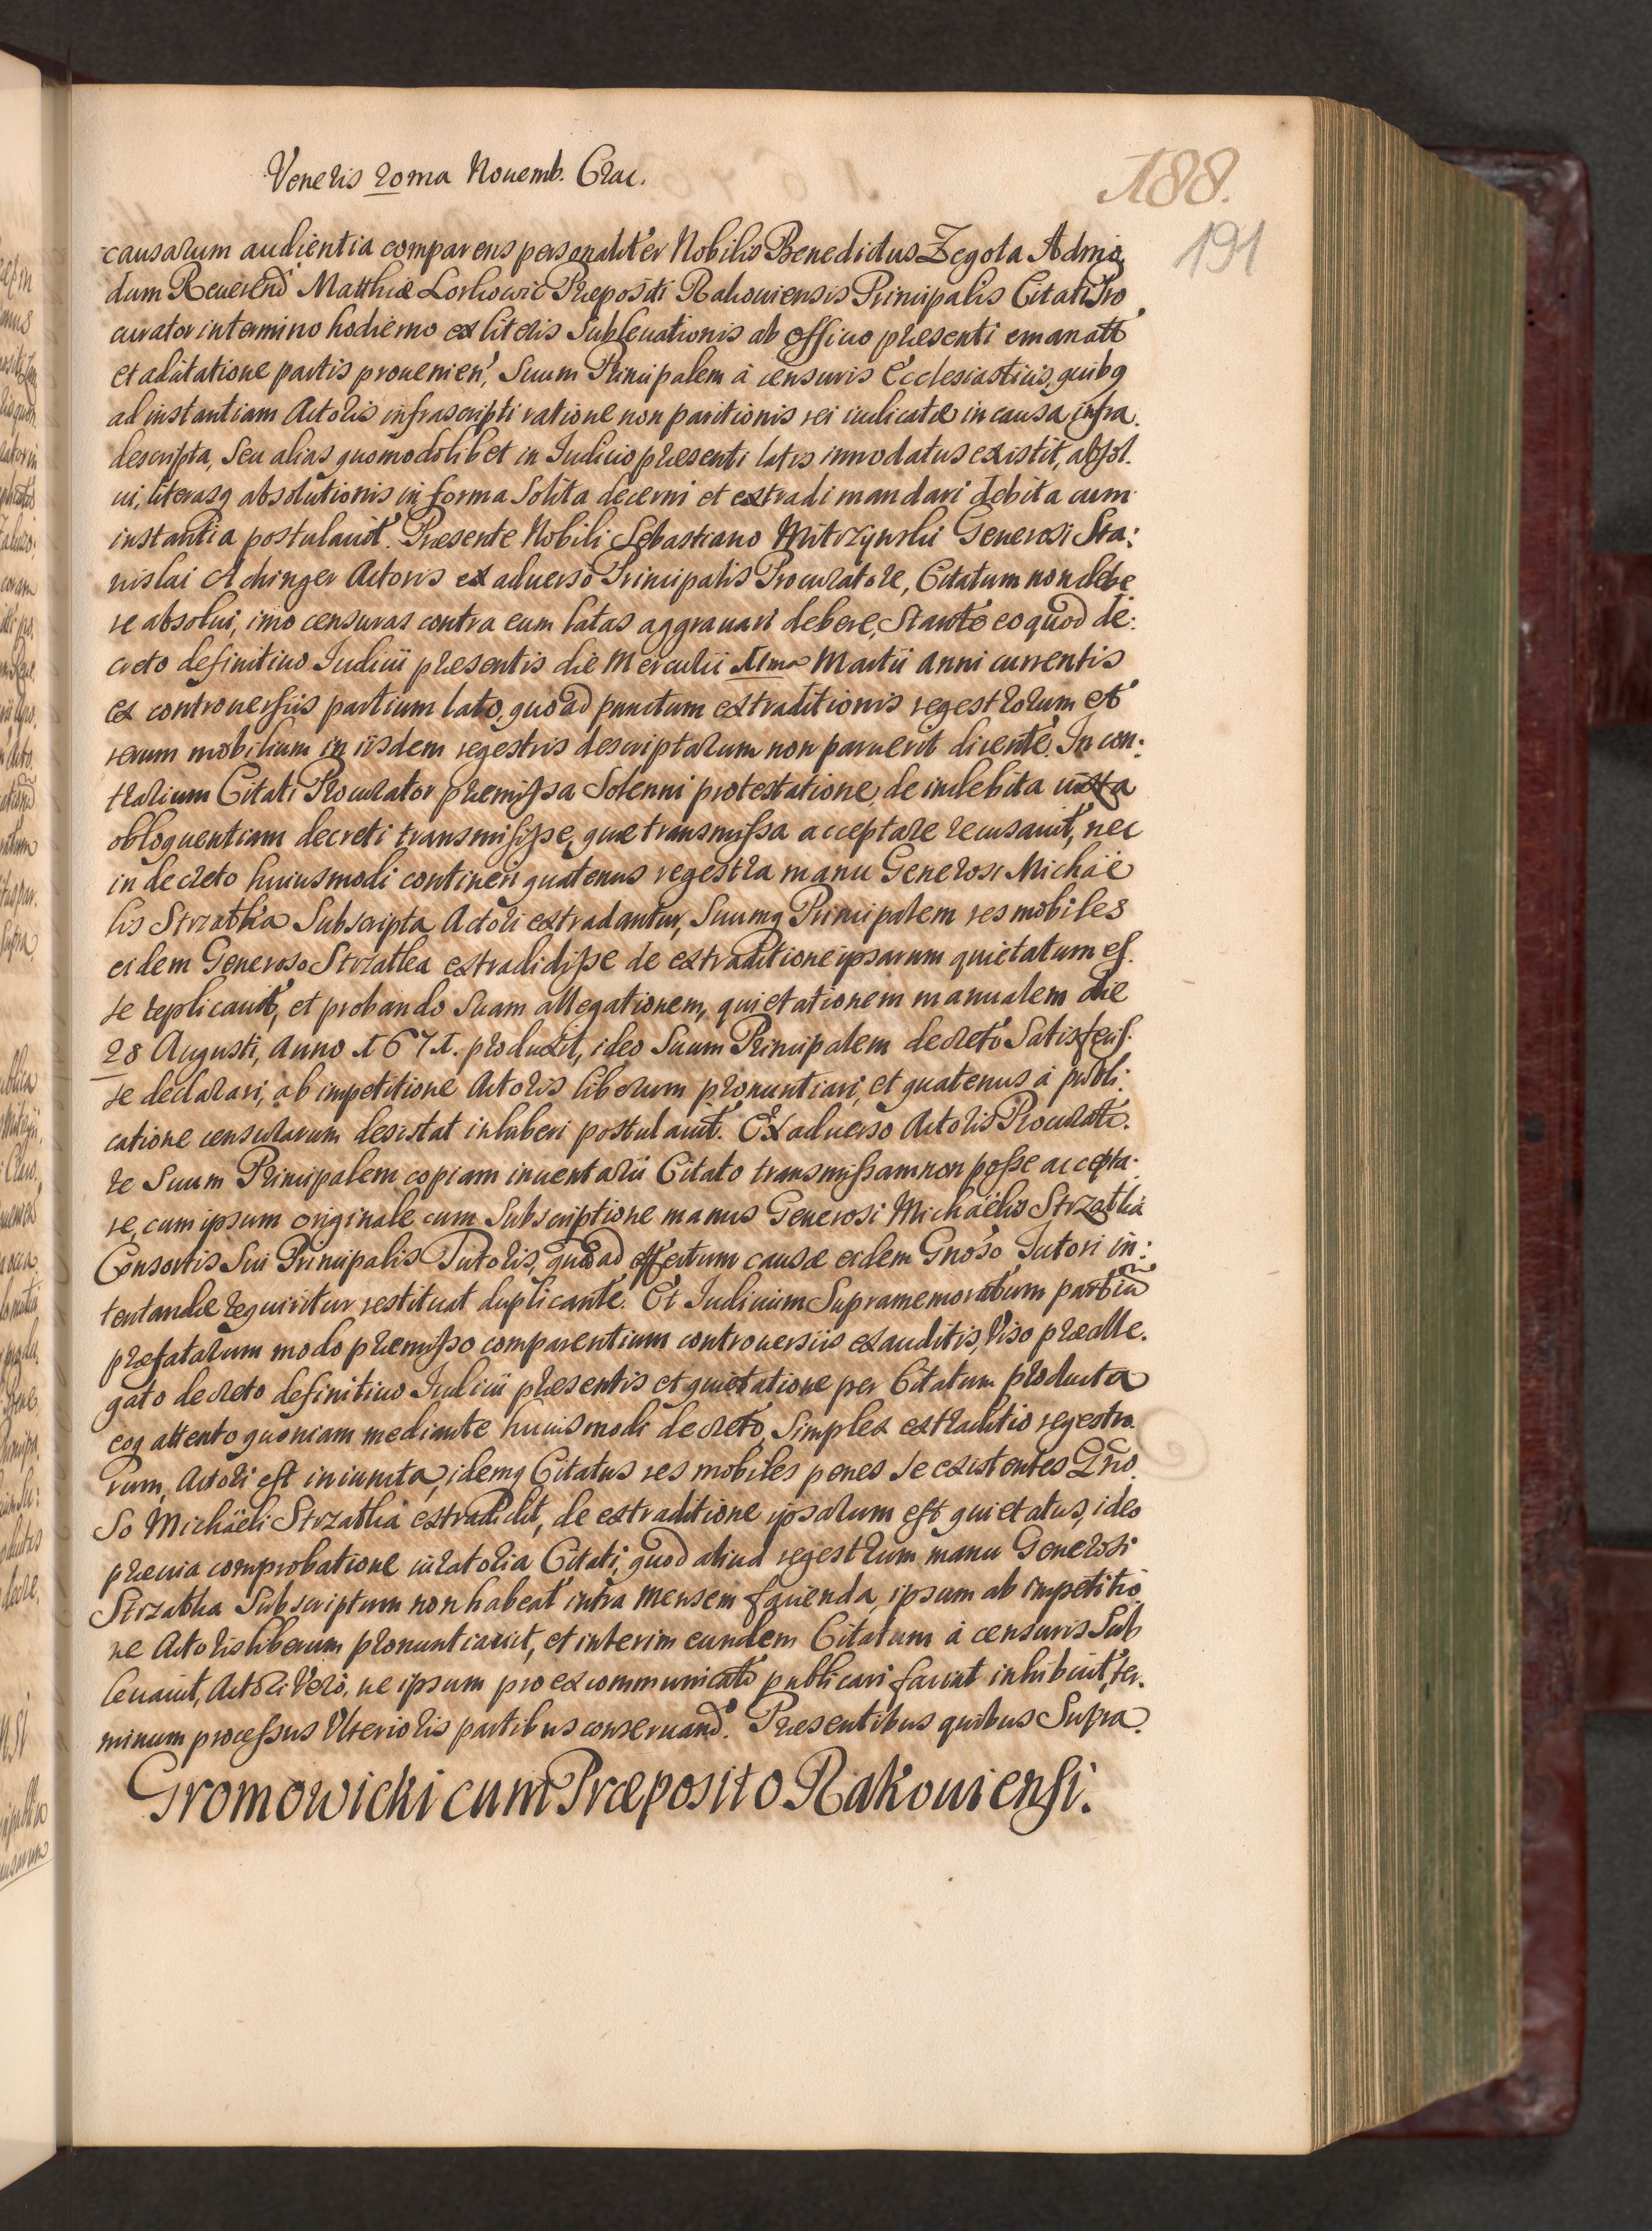 Veneris 20ma Nouemb. Crac.
188.
191
causarum audientia comparens personaliter Nobilis Benedictus Zegota Admo
dum Reuerend Matthiæ Lorkowic Præpositi Rakouiensis Principalis Citati Pro
curator in termino hodierno ex literis Subleuationis ab officio præsenti emanatt
et ad citatione partis prouenien, Suum Principalem à censuris Ecclesiasticis, quibq
ad instantiam Actoris infrascripti ratione non paritionis rei iudicatæ in causa infra
descripta, Seu alias quomodolibet in Iudicio præsenti latis innodatus existit, absol.
ui, literasq absolutionis in forma Solita decerni et extradi mandari debita cum
instantia postulauit. Præsente Nobili Sebastiano Mitrzynski Generosi Sta:
nislai Achinger Actoris ex aduerso Principalis Procuratore, Citatum non debe
re absolui, imo censuras contra eum latas aggrauari debere, Stante eo quod de:
creto definitiuo Iudicii præsentis die Mercurii 11ma Martii Anni currentis
ex controuersiis partium lato, quoad punctum extraditionis regestrorum et
rerum mobilium in iisdem regestris descriptarum non paruerit dicente. In con:
trarium Citati Procurator præmissa Solenni protestatione, de indebita iuxta
obloquentiam decreti transmisisse, quæ transmissa acceptare recusauit, nec
in decreto huiusmodi contineri quatenus regestra manu Generosi Michaë
lis Strzatka Subscripta Actori extradantur, Suumq Principalem res mobiles
eidem Generoso Strzatka extradidisse de extraditione ipsarum quietatum es.
se replicauit, et probando Suam allegationem, quietationem manualem die
28 Augusti, Anno 1671. produxit, ideo Suum Principalem decreto Satisfecis.
se declarari, ab impetitione Actoris liberum pronuntiari, et quatenus à publi.
catione censurarum desistat inhiberi postulauit. Ex aduerso Actoris Procurato.
re Suum Principalem copiam inuentarii Citato transmissam non posse accepta.
re, cum ipsum originale cum Subscriptione manus Generosi Michaëlis Strzatka
Consortis Sui Principalis Tutoris, quoad effectum causæ eidem Gnoso Tutori in:
tentandæ requiritur restituat duplicante. Et Iudicium Supramemoratum partium
præfatarum modo præmisso comparentium controuersiis exauditis, Viso præalle.
gato decreto definitiuo Iudicii præsentis et quietatione per Citatum producta
eoq attento quoniam mediante huiusmodi decreto, Simplex extraditio regestro.
rum, Actori est iniuncta, idemq Citatus res mobiles penes Se existentes Gno.
So Michaëli Strzatka extradidit, de extraditione ipsarum est quietatus, ideo
præuia comprobatione iuratoria Citati, quod aliud regestrum manu Generosi
Strzatka Subscriptum non habeat, intra mensem facienda, ipsum ab impetitio
ne Actoris liberum pronuntiauit, et interim eundem Citatum à censuris Sub
leuauit, Actori Verò, ne ipsum pro excommunicato publicari faciat inhibuit, ter.
minum processus Ulterioris partibus conseruand. Præsentibus quibus Supra.
Gromowicki cum Præposito Rakouiensi.